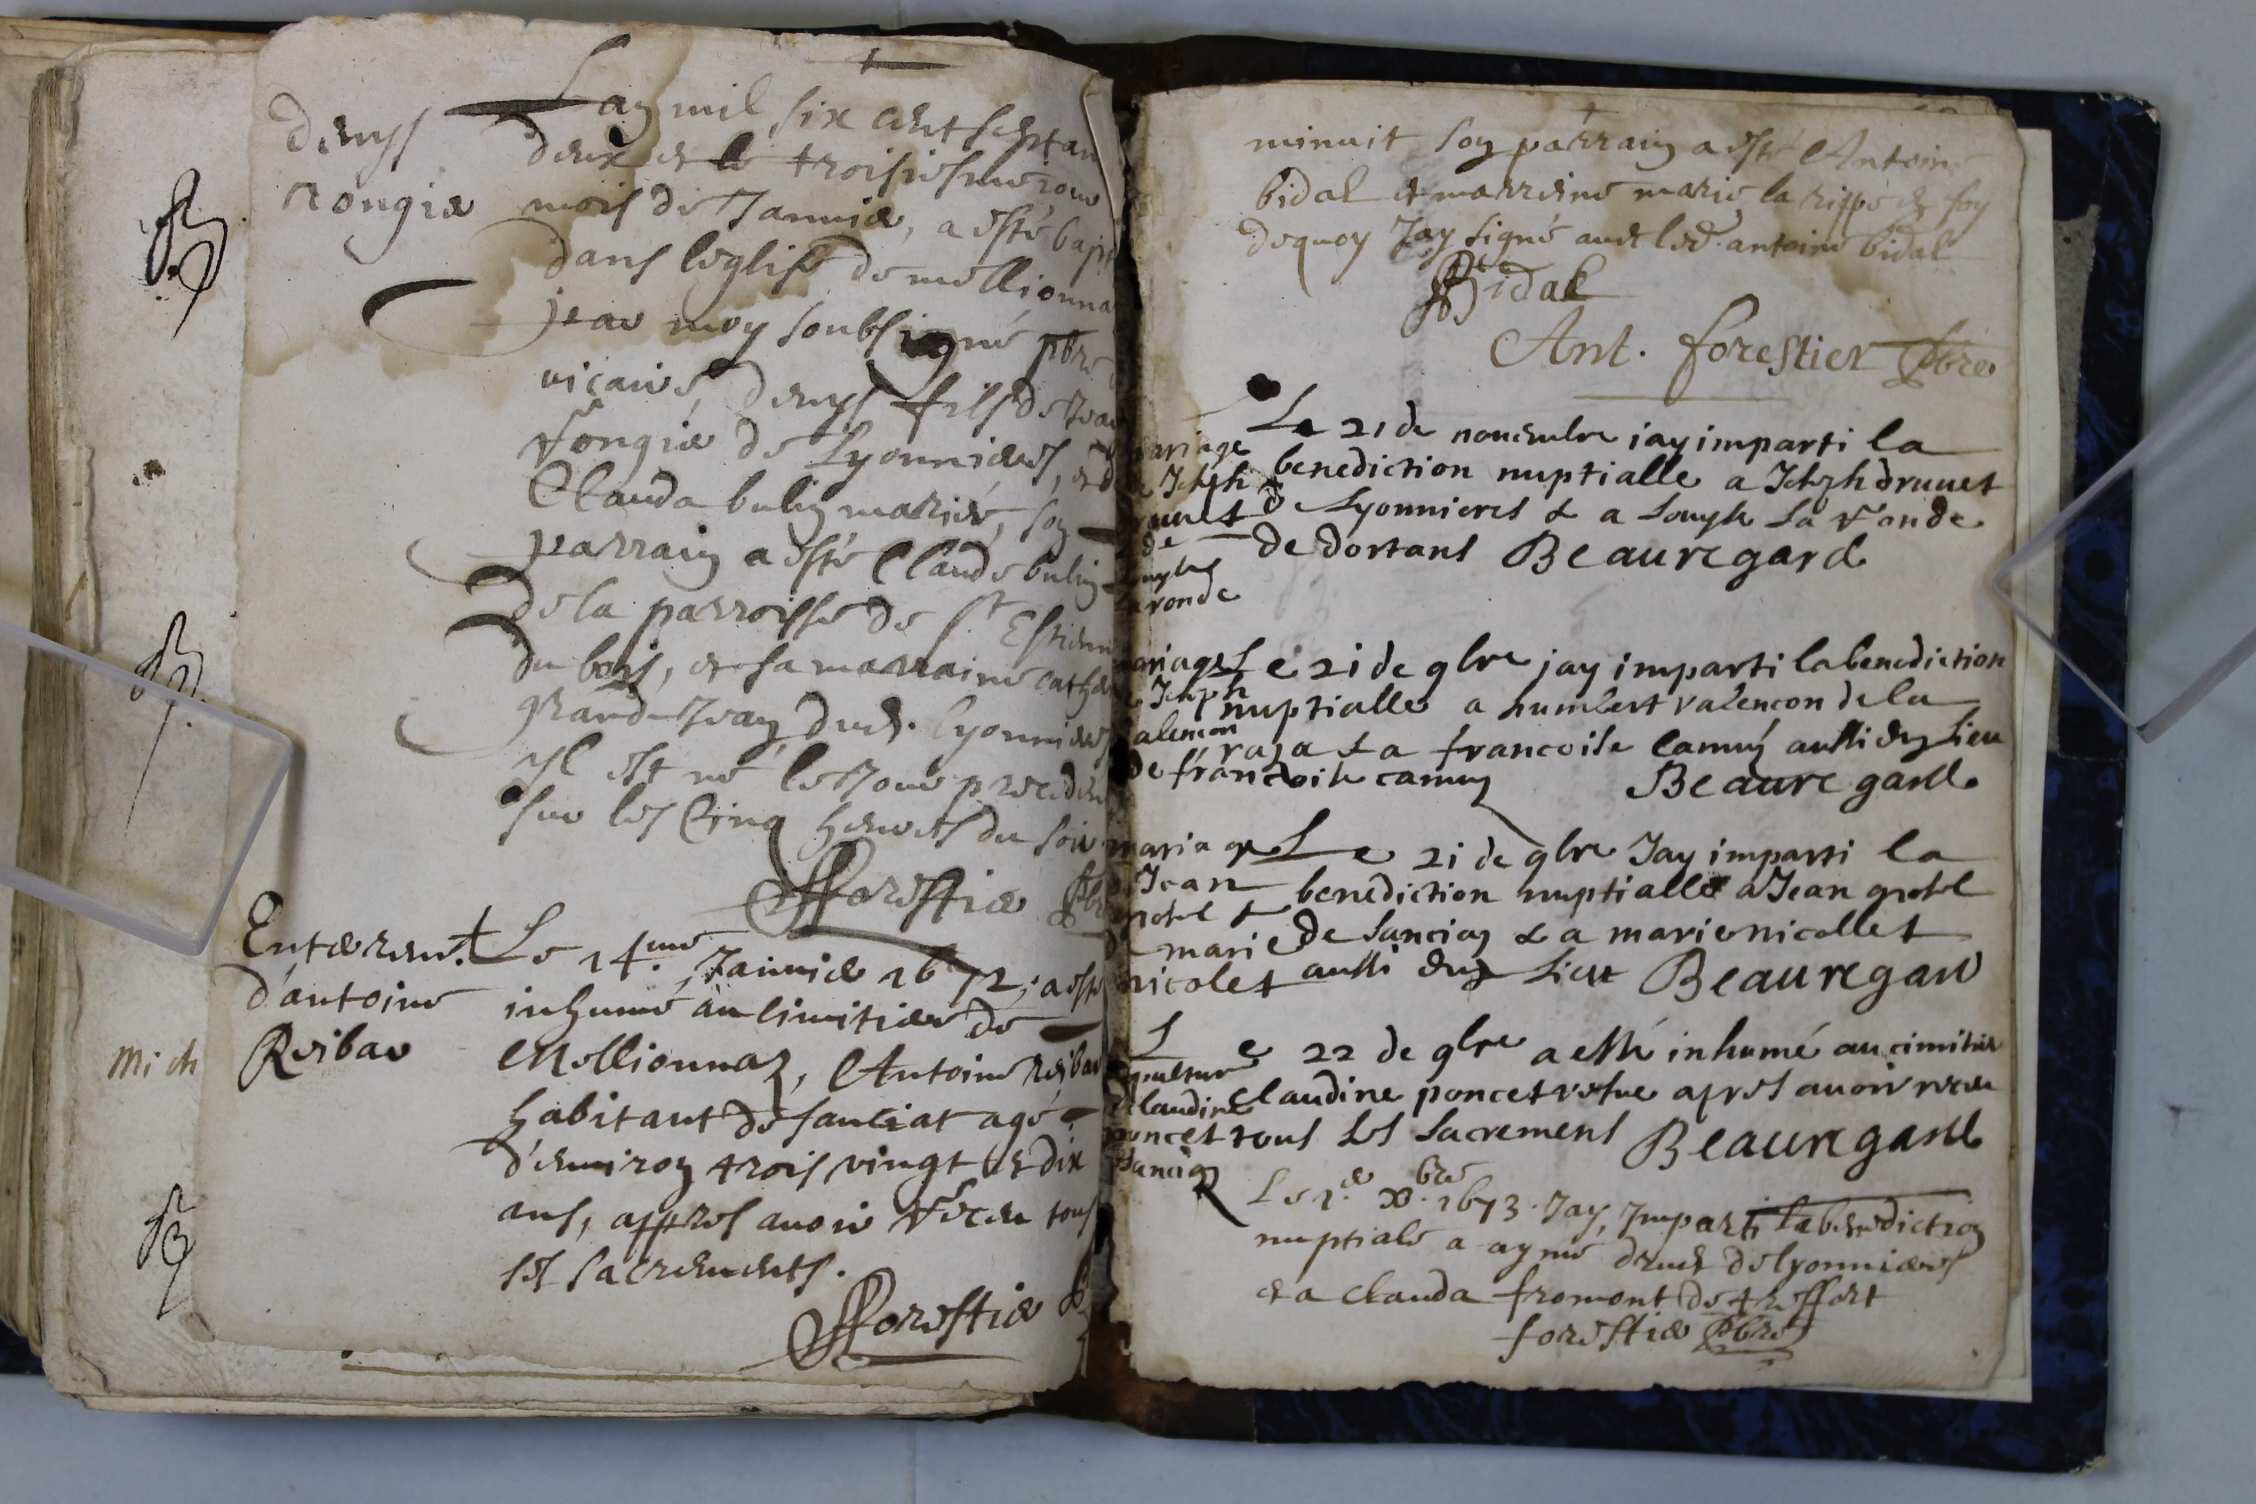 denys
rongier
Lan mil six cent septan
deux et le troisiesme jour
mois de Janvier, a esté bapt
dans leglise de mellionna
par moy soubsigné pbre
vicaire, denys fils de Jean
rongier de Lyonnieres, et d
Clauda bulin mariés, son
parrain a esté Claude bulin
de la parroisse de St Estienn
du bois, et sa marraine cathe
grand Jean dud. lyonnieres
il est né le jour preceden
sur les cinq heures du soir
fforestier pbre
Mich
Enterem.t
d'antoine
Reibar
Le 14.me Janvier 1672, a esté
inhumé au cimitiere de
Mellionnaz, Antoine Reibar
habitant de sanciat agé
d'environ trois vingt et dix
ans, appres avoir receu tous
ses sacrements.
fforestier
minuit son parrain a esté Antoine
bidal et marreine marie la rippe en foy
dequoy Jay signé avec led. antoine bidal
Bidal
Ant. forestier Pbre
ariage
Jhsph
ruuet
de
laronde
Le 21 de novembre iay imparti la
benediction nuptialle a Jhsph druuet
de Lyonnieres & a la ronde
de dortans Beauregard
ariage
Jseph
alencon
de francoise camuz
Le 21 de 9bre jay imparti la benediction
nuptialle a humbert valencon de la
raza & a francoise camuz aussi dud lieu
Beauregard
mariage
Jean
grotel &
marie
nicolet
Le 21 de 9bre Jay imparti la
benediction nuptialle a Jean grotel
de sancia & a marie nicollet
aussi dud lieu Beauregard
epulture
Claudine
poncet
sancia
Le 22 de 9bre a esté inhumé au cimitiere
claudine poncet vefve apres avoir receu
tous les sacrements Beauregard
Le 1.er Xbre 1673. Jay Imparti la benediction
nuptiale a aymé druet de lyonnieres
et a Clauda fromont de treffort
forestier Pbre